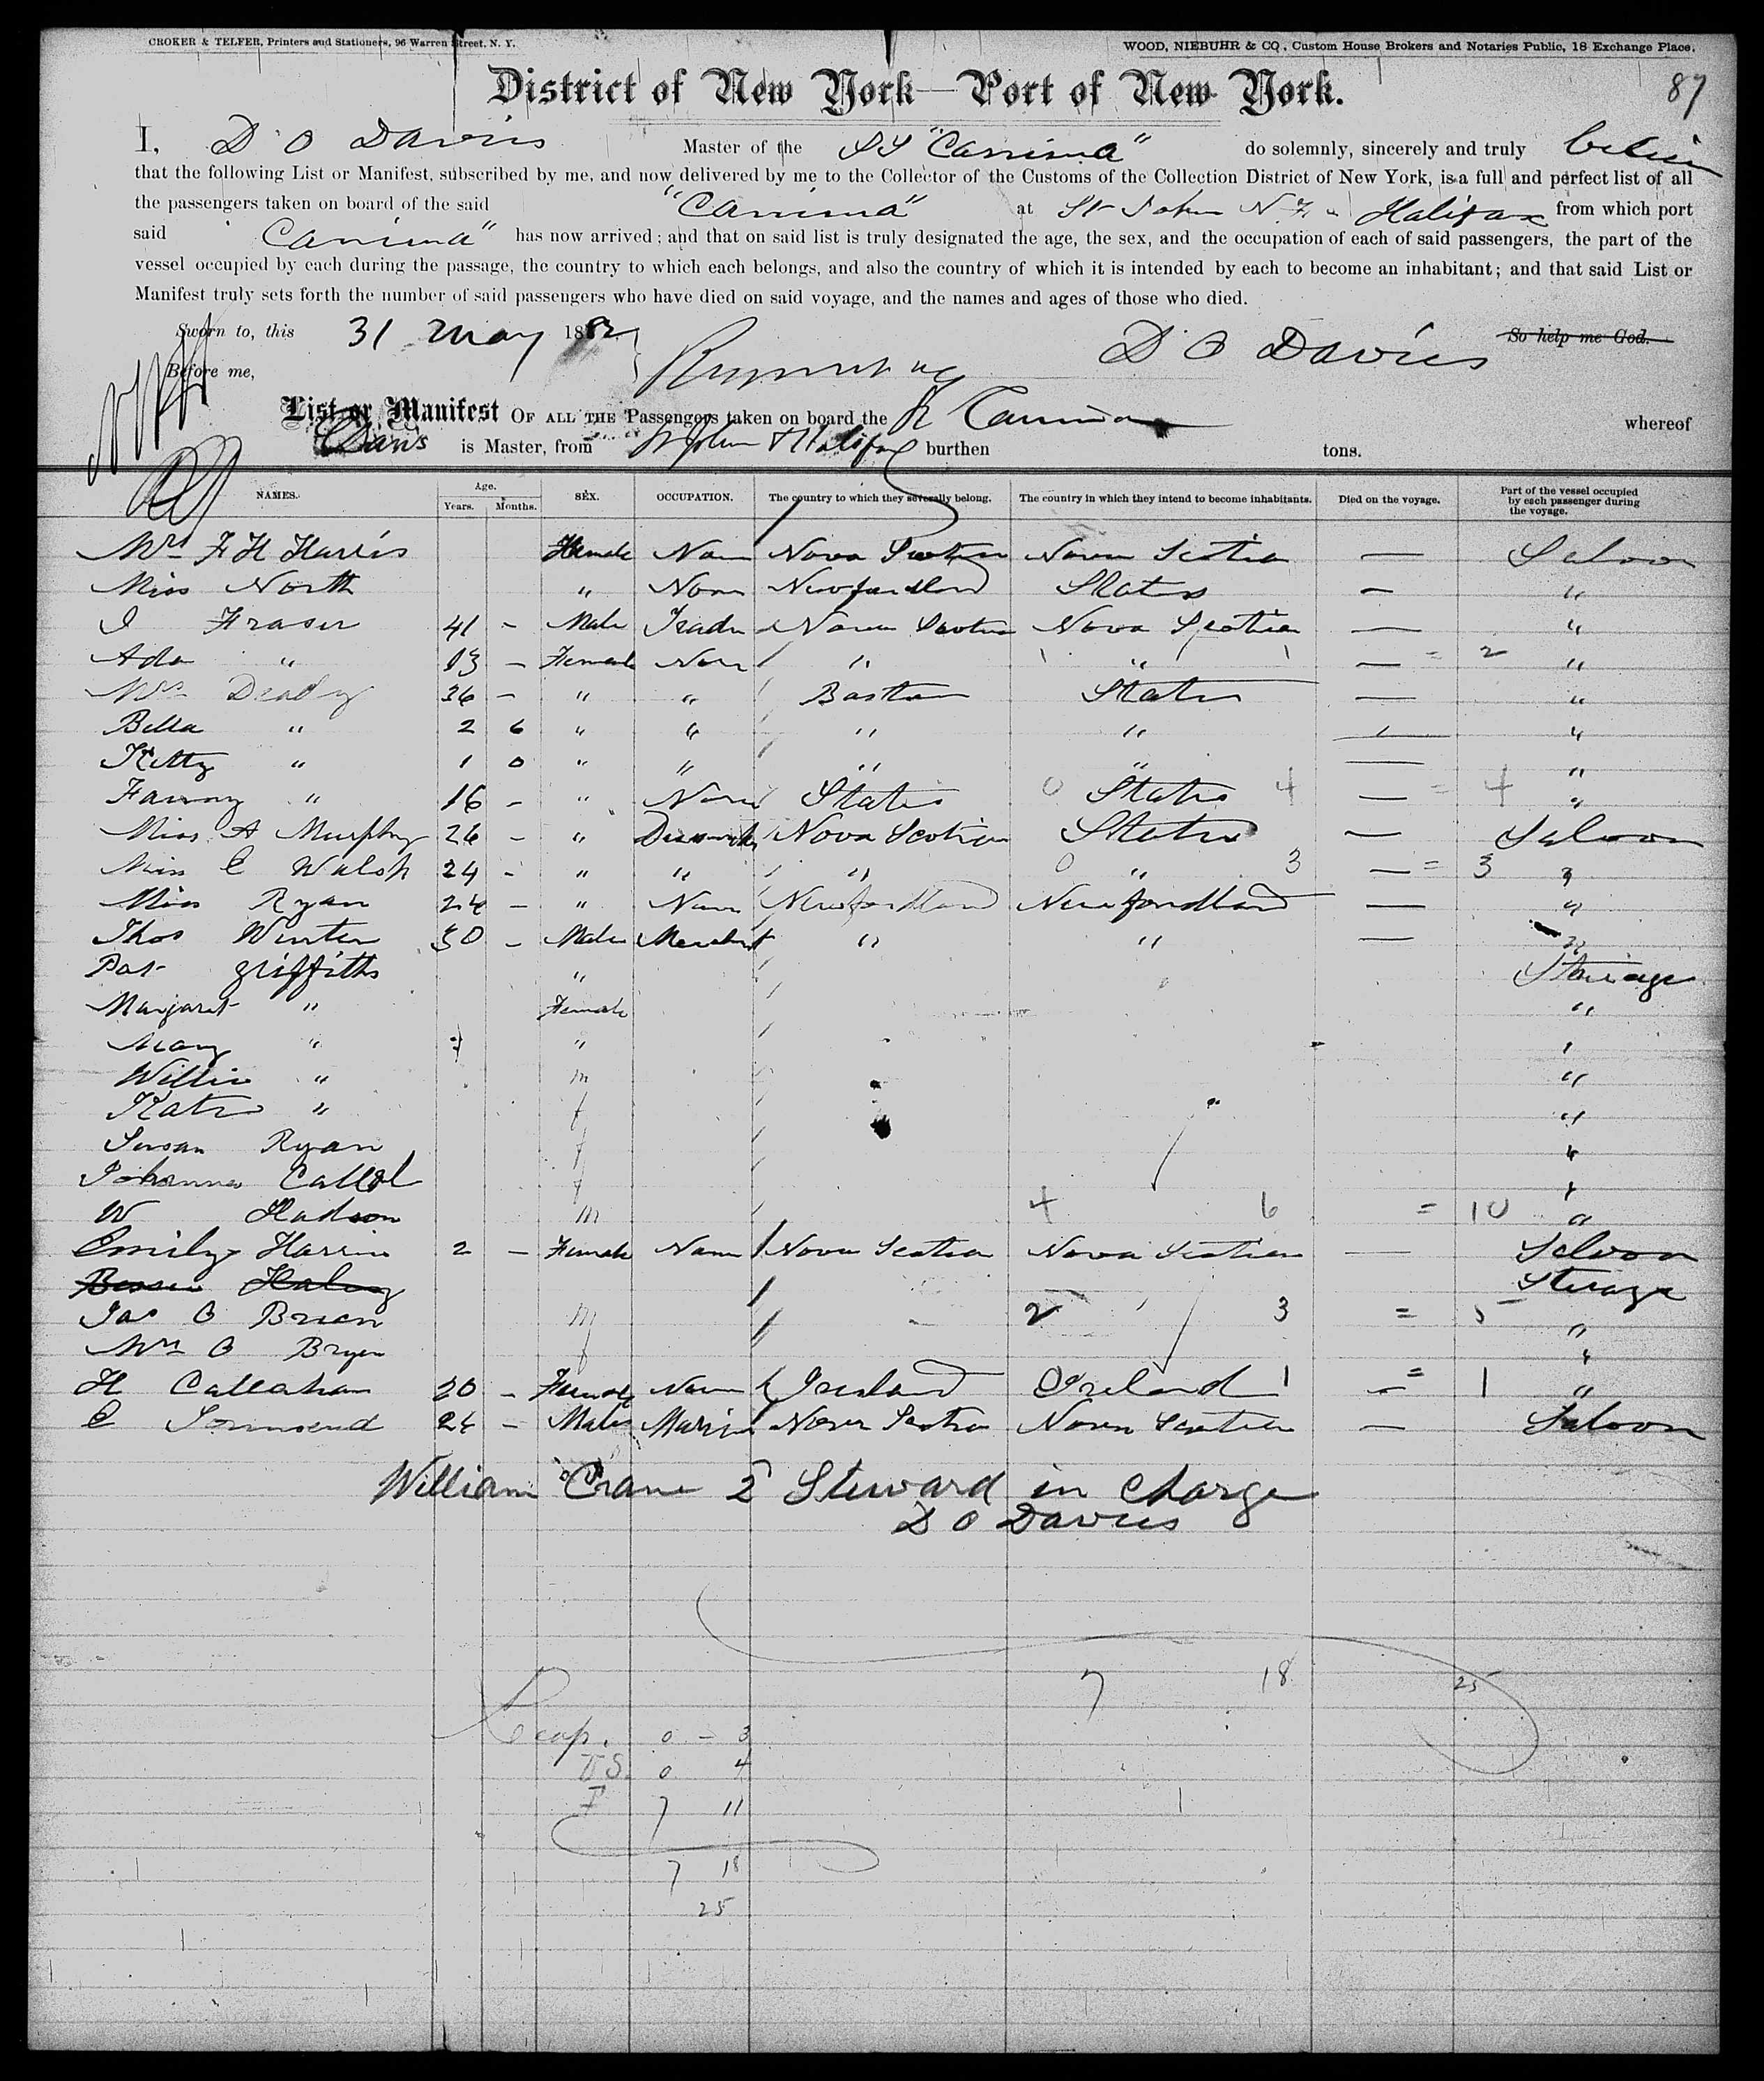 CROKER & TELFER, Printers and Stationers, 96 Warren Street, N. Y.
WOOD, NIEBUHR & CO., Custom House Brokers and Notaries Public, 18 Exchange Place.
87
District of New York—Port of New York.
I, D O Davies Master of the SS "Canima" do solemnly, sincerely and truly
that the following List or Manifest, subscribed by me, and now delivered by me to the Collector of the Customs of the Collection District of New York, is a full and perfect list of all
the passengers taken on board of the said "Canima" at St John N F Halifax from which port
said Canima" has now arrived; and that on said list is truly designated the age, the sex, and the occupation of each of said passengers, the part of the
vessel occupied by each during the passage, the country to which each belongs, and also the country of which it is intended by each to become an inhabitant; and that said List or
Manifest truly sets forth the number of said passengers who have died on said voyage, and the names and ages of those who died.
Sworn to, this 31 May 1882 D O Davies So help me God.
Before me,
List or Manifest OF ALL THE Passengers taken on board the Canima whereof
Davis is Master, from St John & Halifax burthen tons.
NAMES. Age. Years. Months. SEX. OCCUPATION. The country to which they severally belong. The country in which they intend to become inhabitants. Died on the voyage. Part of the vessel occupied by each passenger during the voyage.
Mrs F H Harris Female Non Nova Scotia Nova Scotia — Saloon
Miss North " Non Newfoundland States — "
Fraser 41 - Male Trader Nova Scotia Nova Scotia — "
Ada " 13 - Female Non " " — = 2 "
Mrs Deady 36 - " " Boston States — "
Bella " 2 6 " " " " — "
Kitty " 1 0 " " " " — "
Fanny " 16 - " Non States 0 States 4 — = 4 "
Miss A Murphy 26 - " Nova Scotia States — Saloon
Miss C Walsh 24 - " " " 0 " 3 — = 3 "
Miss Ryan 24 - " Non Newfoundland Newfoundland — "
Thos Winter 30 - Male Merchant " " — "
Pat Griffiths " Steerage
Margaret " Female "
Mary " " "
Willie " m "
Kate " f "
Susan Ryan f "
Johanna f "
W Hudson m 4 6 = 10 "
Emily Harris 2 - Female Non Nova Scotia Nova Scotia — Saloon
Bessie Haley Steerage
Jas O Brien m 2 3 = 5 "
Mrs O Bryen f "
H Callahan 20 - Female Non Ireland Ireland 1 — = 1 "
C Townsend 24 - Male Nova Scotia Nova Scotia — Saloon
William Crane 2 Steward in Charge
D O Davies
7 18 25
Recap. 0 - 3
U S. 0 4
F 7 11
7 18
25